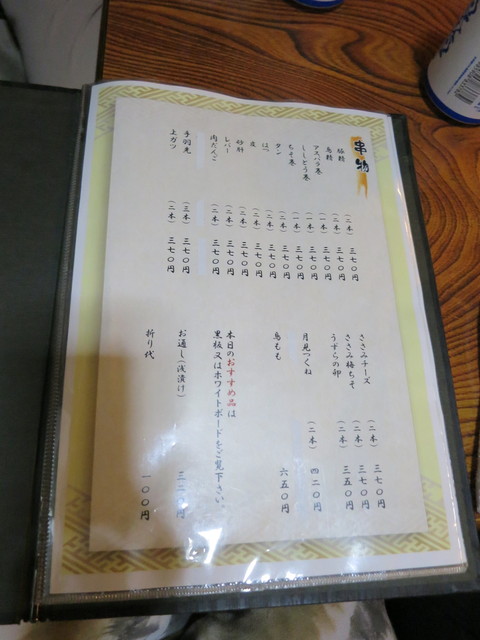 串物
豚精 (二本) 三七〇円
鳥精 (二本) 三七〇円
アスパラ巻 (一本) 三七〇円
ししとう巻 (一本) 三七〇円
ちそ巻 (一本) 三七〇円
タン (二本) 三七〇円
はつ (二本) 三七〇円
皮 (二本) 三七〇円
砂肝 (二本) 三七〇円
レバー (二本) 三七〇円
肉だんご (二本) 三七〇円
手羽先 (三本) 三七〇円
上ガツ (二本) 三七〇円
ささみチーズ (二本) 三七〇円
ささみ梅ちそ (二本) 三七〇円
うずらの卵 (二本) 三五〇円
月見つくね (二本) 四二〇円
鳥もも 六五〇円
本日のおすすめ品は
黒板又はホワイトボードをご覧下さい
お通し(浅漬け) 三二〇円
折り代 一〇〇円